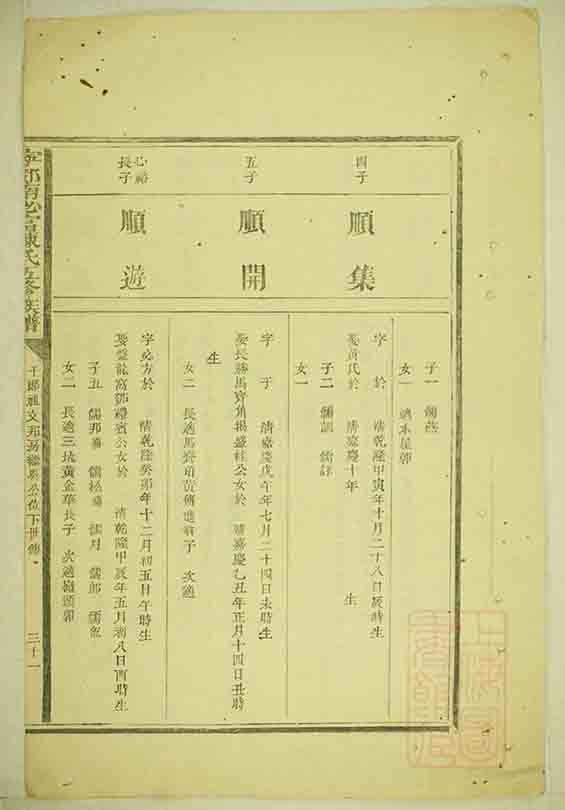 子一 儒
女一 適本屋郭
四子
順集
字 於 清乾隆甲寅年十月二十八日辰時生
娶黃氏於 清嘉慶十年 生
子二 儒訓 儒
女一
五子
順開
字 于 清嘉慶戊午年七月二十四日未時生
娶長勝馬 楊盛桂公女於 清嘉慶乙丑年正月十四日丑時
生
女二 長適馬齊 黃傳進 子 次適
必裕
長子
順遊
字必方於 清乾隆癸卯年十二月初五日午時生
娶盤龍窩鄧禮賓公女於 清乾隆甲辰年五月初八日酉時生
子五 儒邦 儒松 儒 儒郎 儒
女二 長適三坑黃金華長子 次適 頭郭
陳氏五修族譜
公位下世傳
三十一
上海圖書館藏